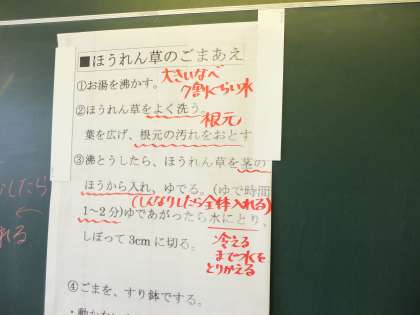 ■ほうれん草のごまあえ
①お湯を沸かす。
大きいなべ
7割くらい水
②ほうれん草をよく洗う。
根元
葉を広げ、根元の汚れをおとす
③沸とうしたら、ほうれん草を茎の
ほうから入れ、ゆでる。(ゆで時間
(しんなりしたら全体入れる)
1~2分)ゆであがったら水にとり、
しぼって3cmに切る。
冷える
まで水を
とりかえる
④ごまを、すり鉢でする。